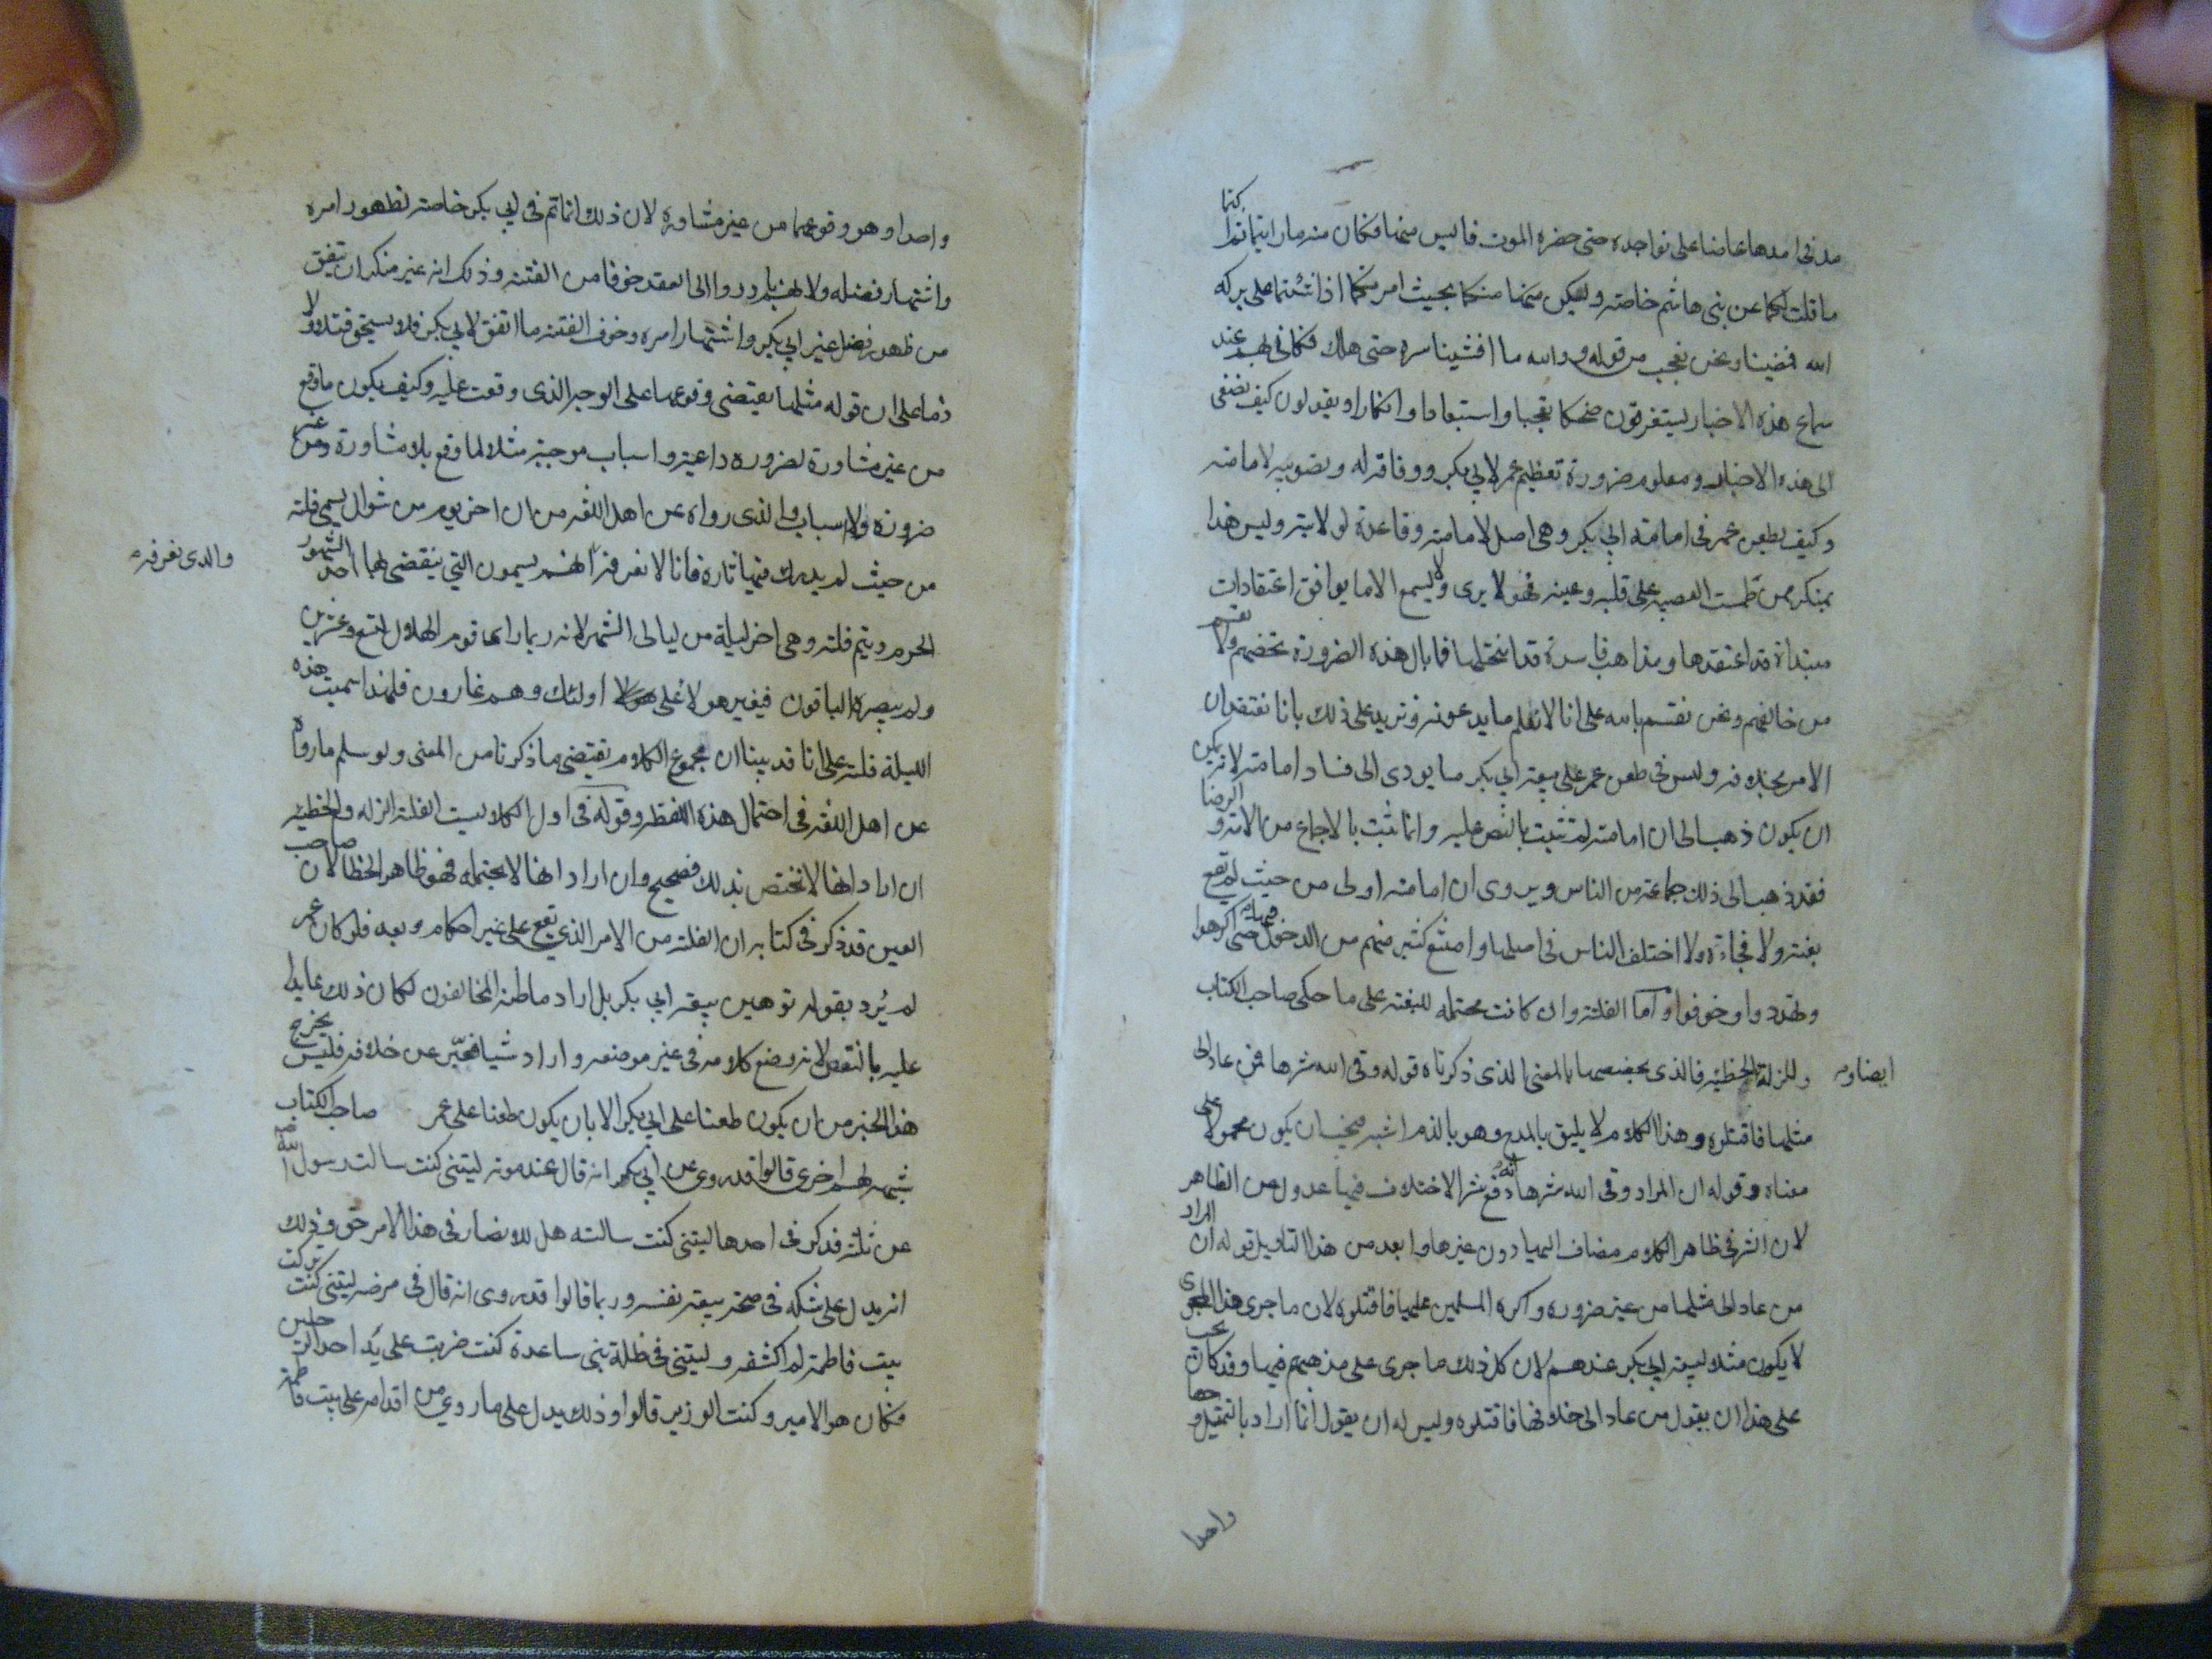 مد في امدها عاضا على نواجده حتى حضره الموت فايس منها فكان منه ما رايتما فاكتما
ما قلت لكما عن بني هاشم خاصة وليكن منكما بحيث امرتكما اذا شئتما على بركه
الله فمضينا ونحن نعجب من قوله ووالله ما افشينا سره حتى هلك فكاني بهم عند
سماع هذه الاخبار يستغرقون ضحكا تعجبا واستبعادا وانكارا ويقولون كيف نصغي
الى هذه الاخبار ومعلوم ضرورة تعظيم عمر لابي بكر ووفاقه له وتصويبه لامامته
وكيف يطعن عمر في امامة ابي بكر وهي اصل لامامته وقاعدة لولايته وليس هذا
بمنكر ممن طمست العصبيه على قلبه وعينه فهو لا يرى ولا يسمع الا ما يوافق اعتقادات
مبتداة قد اعتقدها ومذاهب فاسدة قد انتحلها فما بال هذه الضرورة تخصهم ولا تعم
من خالفهم ونحن نقسم بالله على انا لا نعلم ما يدعونه ونزيد على ذلك بانا نعتقد ان
الامر بخلافه وليس في طعن عمر على بيعة ابي بكر ما يودي الى فساد امامته لانه يمكن
ان يكون ذهب الى ان امامته لم تثبت بالنص عليه وانما تثبت بالاجماع من الامة والرضا
فقد ذهب الى ذلك جماعة من الناس ويروى ان امامته اولى من حيث لم تقع
بغتة ولا فجاءة ولا اختلف الناس في اصلها وامتنع كثير منهم من الدخول فيها حتى اكرهوا
وتهددوا وخوفوا واما الفلتة وان كانت محتمله للبغته على ما حكى صاحب الكتاب
وللزلة والخطيئه فالذي يخصصها بالمعنى الذي ذكرناه قوله وقى الله شرها فمن عاد الى
ايضا وم
مثلها فاقتلوه وهذا الكلام لا يليق بالمدح وهو بالذم اشبه فيجب ان يكون محمولا على
معناه وقوله ان المراد وقى الله شرها انه دفع شر الاختلاف فيها عدول عن الظاهر
لان الشر في ظاهر الكلام مضاف اليها دون غيرها وابعد من هذا التاويل قوله ان المراد
من عاد الى مثلها من غير ضروره واكره المسلمين عليها فاقتلوه لان ما جرى هذا المجرى
لا يكون مثلا لبيعة ابي بكر عندهم لان كل ذلك ما جرى على مذهبهم فيها وقد كان يجب
على هذا ان يقول من عاد الى خلافها فاقتلوه وليس له ان يقول انما اراد بالتمثيل وجها
واحدا
واحدا وهو وقوعها من غير مشاورة لان ذلك انما تم في ابي بكر خاصة لظهور امره
واشتهار فضله ولانهم بادروا الى العقد خوفا من الفتنة وذلك انه غير منكر ان يتفق
من ظهور فضل غير ابي بكر واشتهار امره وخوف الفتنة ما اتفق لابي بكر فلا يستحق قتلا ولا
ذما على ان قوله مثلها يقتضي وقوعها على الوجه الذي وقعت عليه وكيف يكون ما وقع
من غير مشاورة لضروره داعية واسباب موجبة مثلا لما وقع بلا مشاورة ومن غير
ضرورة ولا اسباب والذي رواه عن اهل اللغه من ان اخر يوم من شوال يسمى فلتة
من حيث لم يدرك فيها ثاره فانا لا نعرفه انهم يسمون التي ينقضي بها احد الشهور
والذي نعرفه م
الحرم ويتم فلتة وهي اخر ليلة من ليالي الشهر لانه ربما راى قوم الهلال لتسع وعشرين
ولم يبصره الباقون فيغير هولا على اولئك وهم غارون فلهذا سميت هذه
الليلة فلتة على انا قد بينا ان مجموع الكلام يقتضي ما ذكرنا من المعنى ولو سلم ما رواه
عن اهل اللغه في احتمال هذه اللفظه وقوله في اول الكلام ليست الفلتة الزله والخطيئه
ان اراد انها لا تختص بذلك فصحيح وان اراد انها لا تحتمله فهو ظاهر الخطا لان صاحب
العين قد ذكر في كتابه ان الفلتة من الامر الذي يقع على غير احكام وبعد فلو كان عمر
لم يُرد بقوله توهين بيعة ابي بكر بل اراد ما ظنه المخالفون لكان ذلك عايدا
عليه بالنقص لانه وضع كلامه في غير موضعه واراد شيا فعبّر عن خلافه فليس يخرج
هذا الخبر من ان يكون طعنا على ابي بكر الا بان يكون طعنا على عمر صاحب الكتاب
شبهه لهم اخرى قالوا قد روى عن ابي بكر انه قال عند موته ليتني كنت سالت رسول الله ص
عن ثلثة فذكر في احدها ليتني كنت سالته هل للانصار في هذا الامر حق وذلك
انه يدل على شكه في صحة بيعته نفسه وربما قالوا قد روى انه قال في مرضه ليتني كنت تركت
بيت فاطمة لم اكشفه وليتني في ظلة بني ساعدة كنت ضربت على يد احد الرجلين
فكان هو الامير وكنت الوزير قالوا وذلك يدل على ما روي من اقدامه على بيت فاطمة